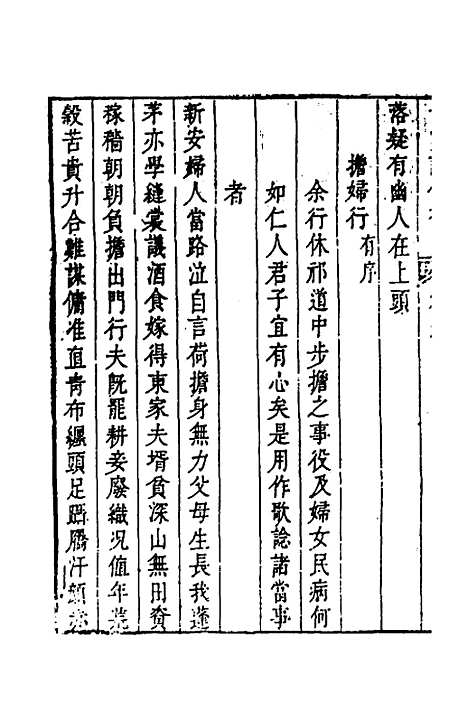 落疑有幽人在上頭
擔婦行有序
余行休祁道中步擔之事役及婦女民病何
如仁人君子宜有心矣是用作歌諗諸當事
者
新安婦人當路泣自言荷擔身無力父母生長我蓬
茅亦學縫裳議酒食嫁得東家夫壻貧深山無田資
稼穡朝朝負擔出門行夫旣罷耕妾廢織況值年荒
穀苦貴升合難謀傭准直靑布纏頭足躋屩汗顏